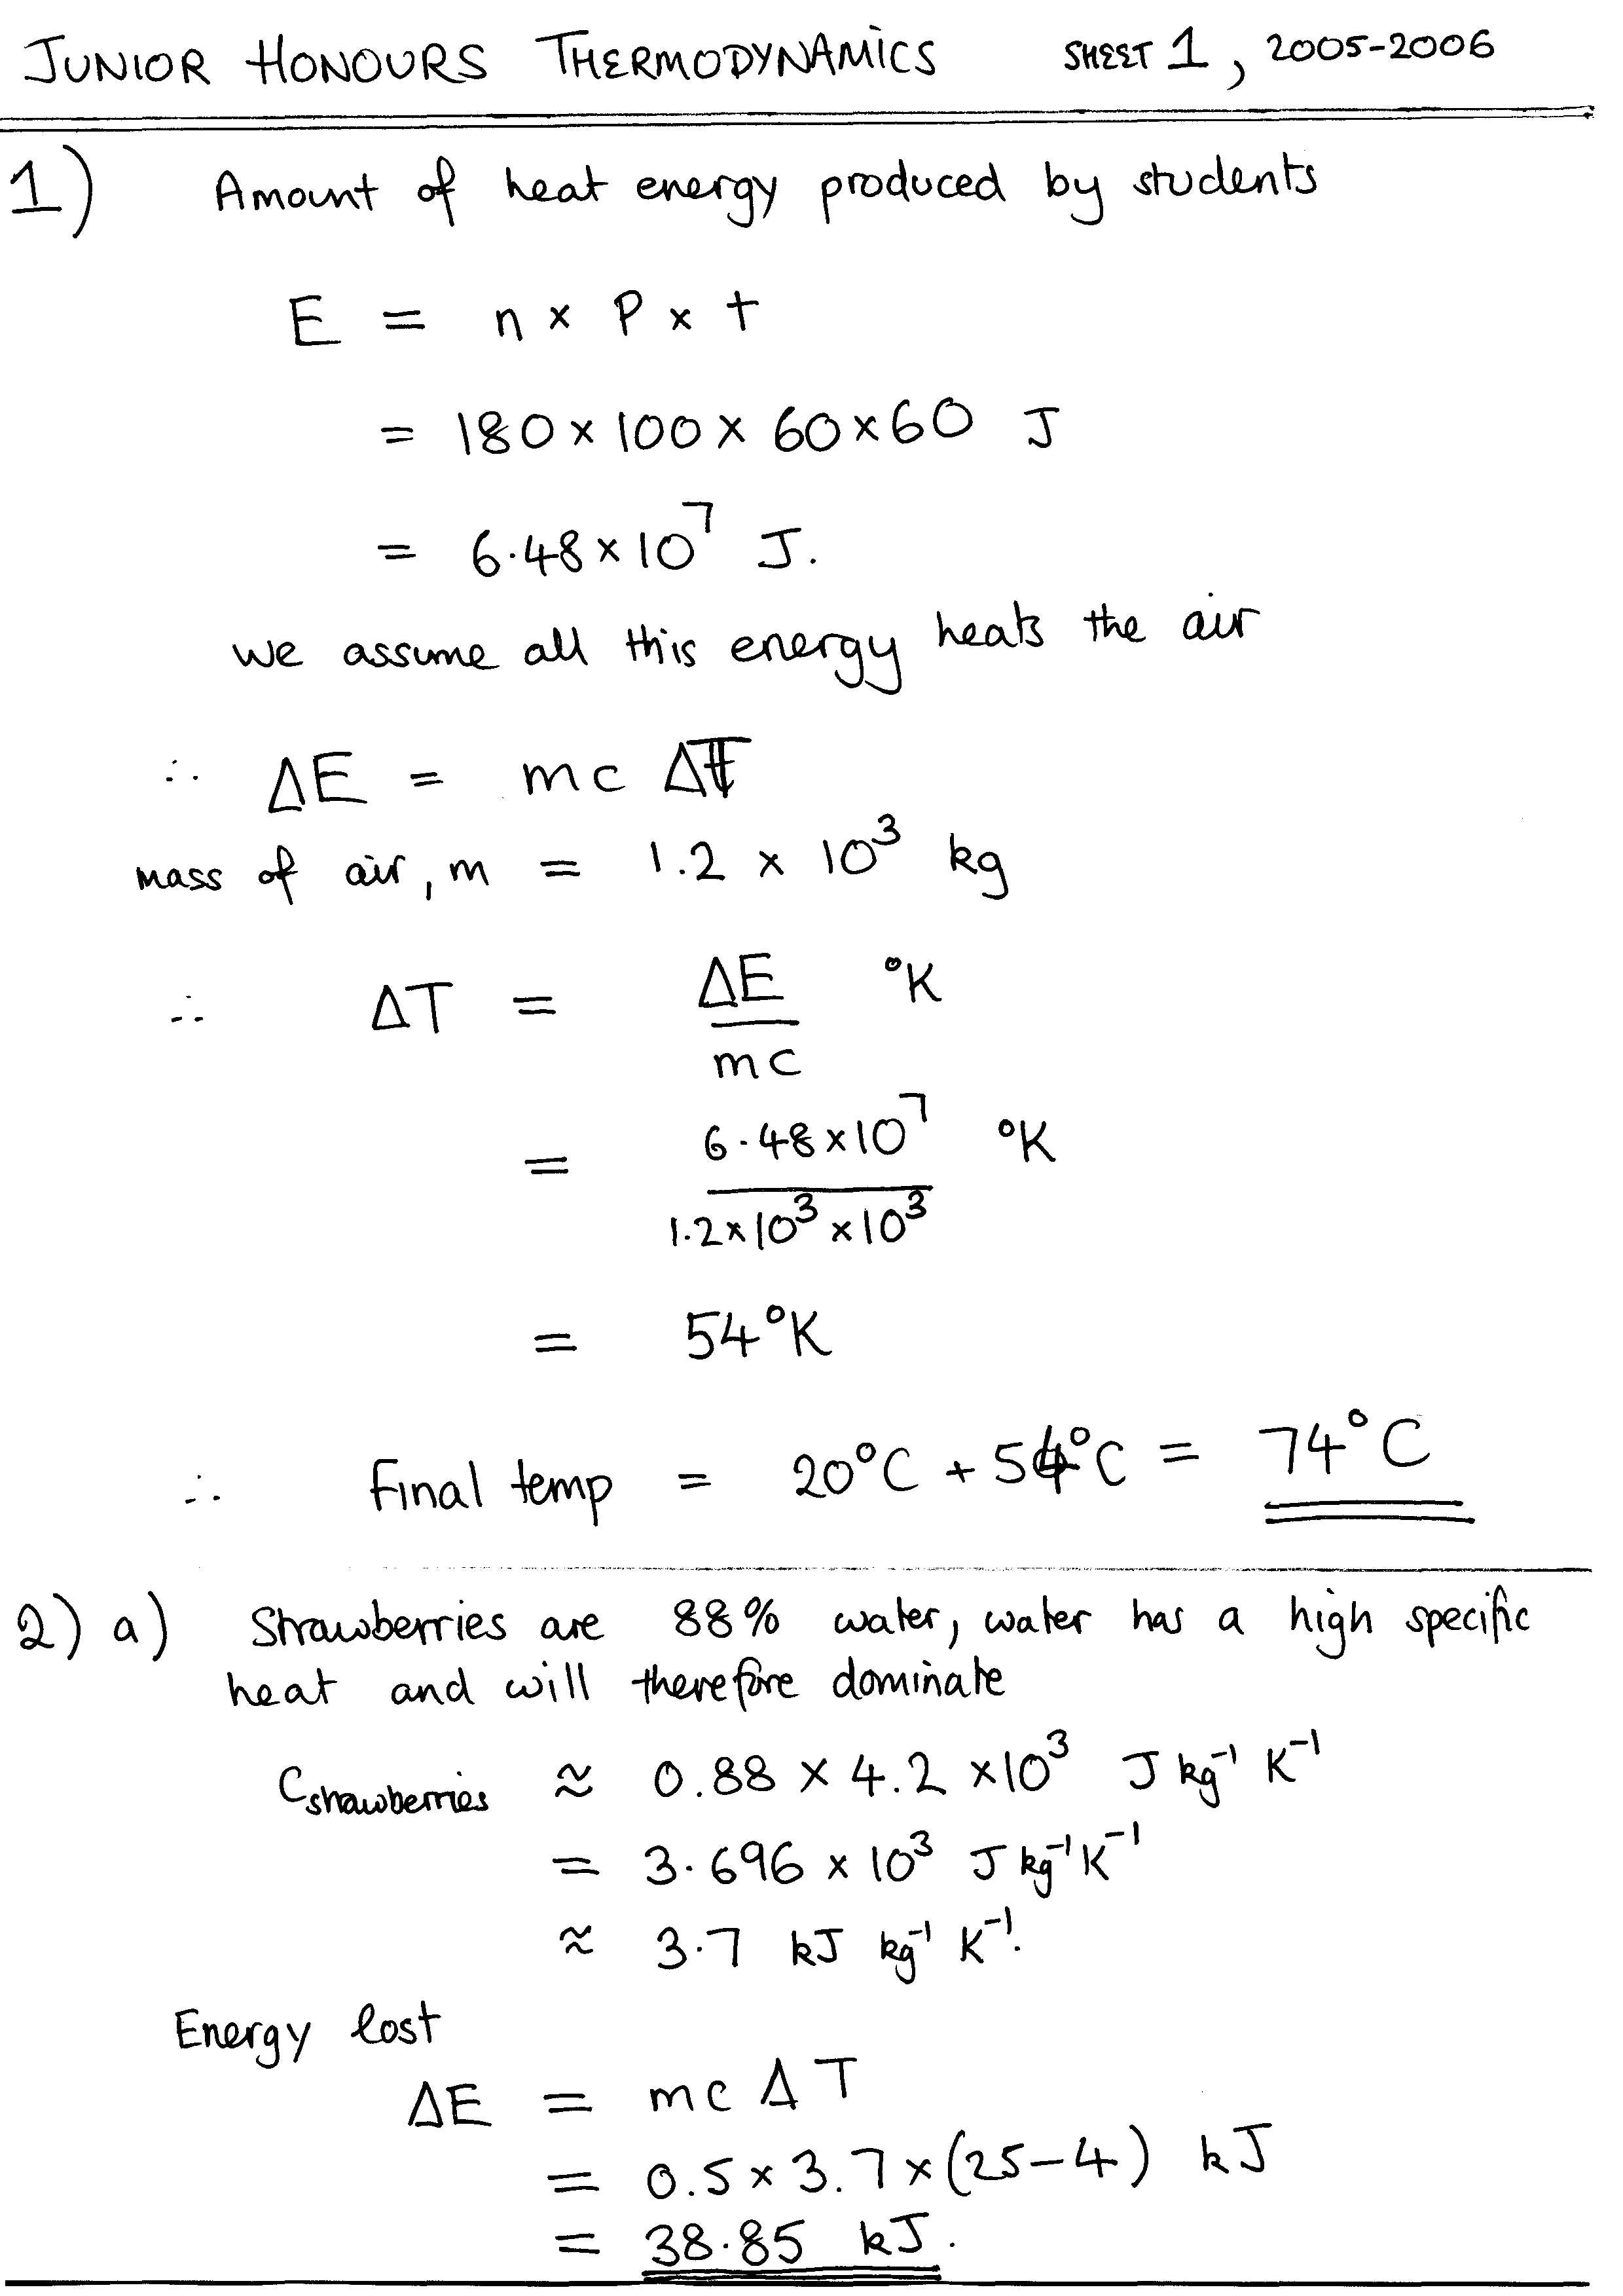 JUNIOR HONOURS THERMODYNAMICS SHEET 1, 2005-2006
1) Amount of heat energy produced by students
E = n × P × t
= 180 × 100 × 60 × 60 J
= 6.48 × 10⁷ J.
We assume all this energy heats the air
∴ ΔE = mc ΔT
mass of air, m = 1.2 × 10³ kg
∴ ΔT = ΔE/mc °K
= 6.48 × 10⁷ / 1.2 × 10³ × 10³ °K
= 54 °K
∴ Final temp = 20°C + 54°C = 74°C
2) a) Strawberries are 88% water, water has a high specific
heat and will therefore dominate
C strawberries ≈ 0.88 × 4.2 × 10³ J kg⁻¹ K⁻¹
= 3.696 × 10³ J kg⁻¹ K⁻¹
≈ 3.7 kJ kg⁻¹ K⁻¹.
Energy lost
ΔE = mc ΔT
= 0.5 × 3.7 × (25-4) kJ
= 38.85 kJ.